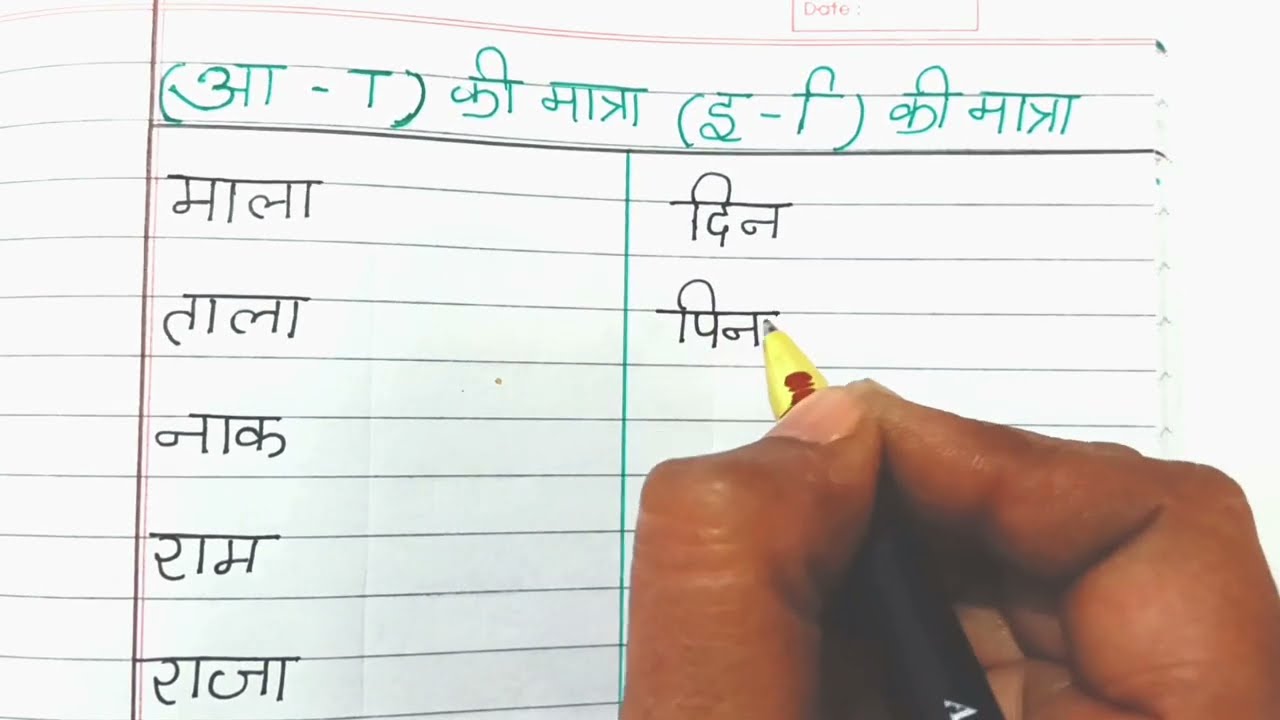 Date :
(आ - ा) की मात्रा (इ - ि) की मात्रा
माला दिन
ताला पिन
नाक
राम
राजा
A